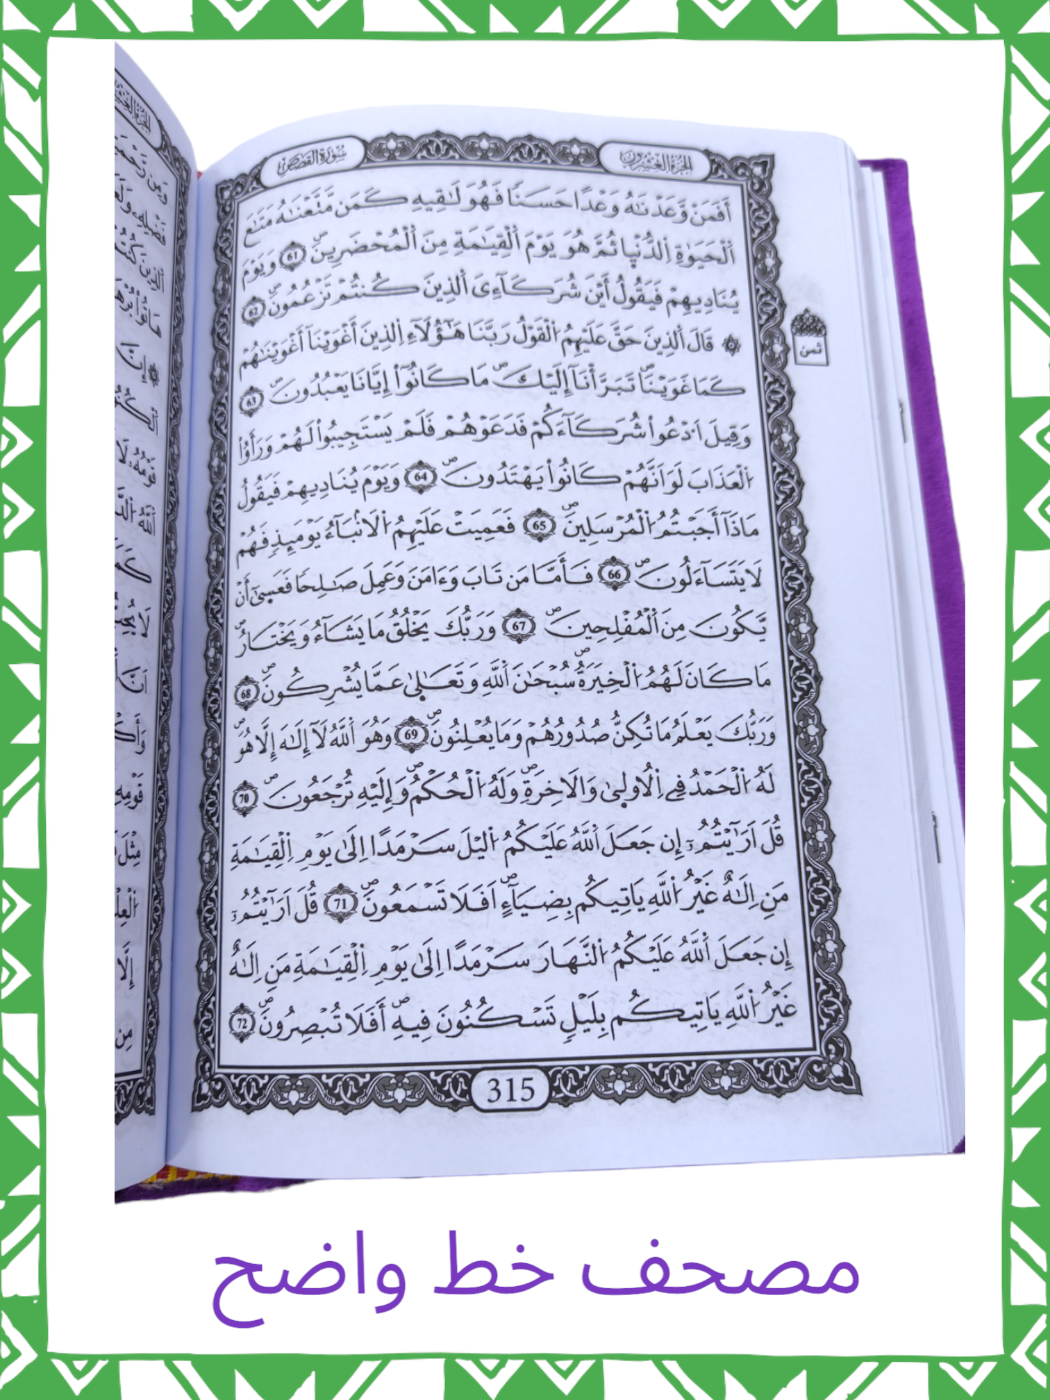 سُورَةُ القَصَصِ
الجُزْءُ العِشْرُونَ
أَفَمَنْ وَّعَدْنَٰهُ وَعْدًا حَسَنًا فَهُوَ لَٰقِيهِ كَمَن مَّتَّعْنَٰهُ مَتَٰعَ
اَ۬لْحَيَوٰةِ اِ۬لدُّنْي۪ا ثُمَّ هُوَ يَوْمَ اَ۬لْقِيَٰمَةِ مِنَ اَ۬لْمُحْضَرِينَۖ 61 وَيَوْمَ
يُنَادِيهِمْ فَيَقُولُ أَيْنَ شُرَكَآءِىَ اَ۬لذِينَ كُنتُمْ تَزْعُمُونَۖ 62
۞ قَالَ اَ۬لذِينَ حَقَّ عَلَيْهِمُ اُ۬لْقَوْلُ رَبَّنَا هَٰٓؤُلَآءِ اِ۬لذِينَ أَغْوَيْنَآ أَغْوَيْنَٰهُمْ
كَمَا غَوَيْنَاۖ تَبَرَّأْنَآ إِلَيْكَۖ مَا كَانُوٓاْ إِيَّانَا يَعْبُدُونَۖ 63
وَقِيلَ اَ۟دْعُواْ شُرَكَآءَكُمْ فَدَعَوْهُمْ فَلَمْ يَسْتَجِيبُواْ لَهُمْ وَرَأَوُاْ
اُ۬لْعَذَابَ لَوَ اَنَّهُمْ كَانُواْ يَهْتَدُونَۖ 64 وَيَوْمَ يُنَادِيهِمْ فَيَقُولُ
مَاذَآ أَجَبْتُمُ اُ۬لْمُرْسَلِينَۖ 65 فَعَمِيَتْ عَلَيْهِمُ اُ۬لَانۢبَآءُ يَوْمَئِذٖ فَهُمْ
لَا يَتَسَآءَلُونَۖ 66 فَأَمَّا مَن تَابَ وَءَامَنَ وَعَمِلَ صَٰلِحًا فَعَس۪ىٰٓ أَنْ
يَّكُونَ مِنَ اَ۬لْمُفْلِحِينَۖ 67 وَرَبُّكَ يَخْلُقُ مَا يَشَآءُ وَيَخْتَارُۖ
مَا كَانَ لَهُمُ اُ۬لْخِيَرَةُۖ سُبْحَٰنَ اَ۬للَّهِ وَتَعَٰل۪ىٰ عَمَّا يُشْرِكُونَۖ 68
وَرَبُّكَ يَعْلَمُ مَا تُكِنُّ صُدُورُهُمْ وَمَا يُعْلِنُونَۖ 69 وَهُوَ اَ۬للَّهُ لَآ إِلَٰهَ إِلَّا هُوَۖ
لَهُ اُ۬لْحَمْدُ فِے اِ۬لُاول۪ىٰ وَالَاخِرَةِۖ وَلَهُ اُ۬لْحُكْمُۖ وَإِلَيْهِ تُرْجَعُونَۖ 70
قُلَ اَرَٰٓيْتُمُۥٓ إِن جَعَلَ اَ۬للَّهُ عَلَيْكُمُ اُ۬ليْلَ سَرْمَدًا اِلَىٰ يَوْمِ اِ۬لْقِيَٰمَةِ
مَنِ اِلَٰهٌ غَيْرُ اُ۬للَّهِ يَاتِيكُم بِضِيَآءٍۖ اَفَلَا تَسْمَعُونَۖ 71 قُلَ اَرَٰٓيْتُمُۥٓ
إِن جَعَلَ اَ۬للَّهُ عَلَيْكُمُ اُ۬لنَّهَارَ سَرْمَدًا اِلَىٰ يَوْمِ اِ۬لْقِيَٰمَةِ مَنِ اِلَٰهٌ
غَيْرُ اُ۬للَّهِ يَاتِيكُم بِلَيْلٖ تَسْكُنُونَ فِيهِۖ أَفَلَا تُبْصِرُونَۖ 72
ثمن
315
مصحف خط واضح